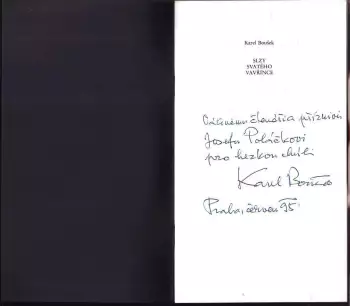 Karel Boušek
SLZY
SVATÉHO
VAVŘINCE
Váženému čtenáři a příznivci
Josefu Poláčkovi
pro hezkou chvíli
Karel Boušek
Praha, červen 95.